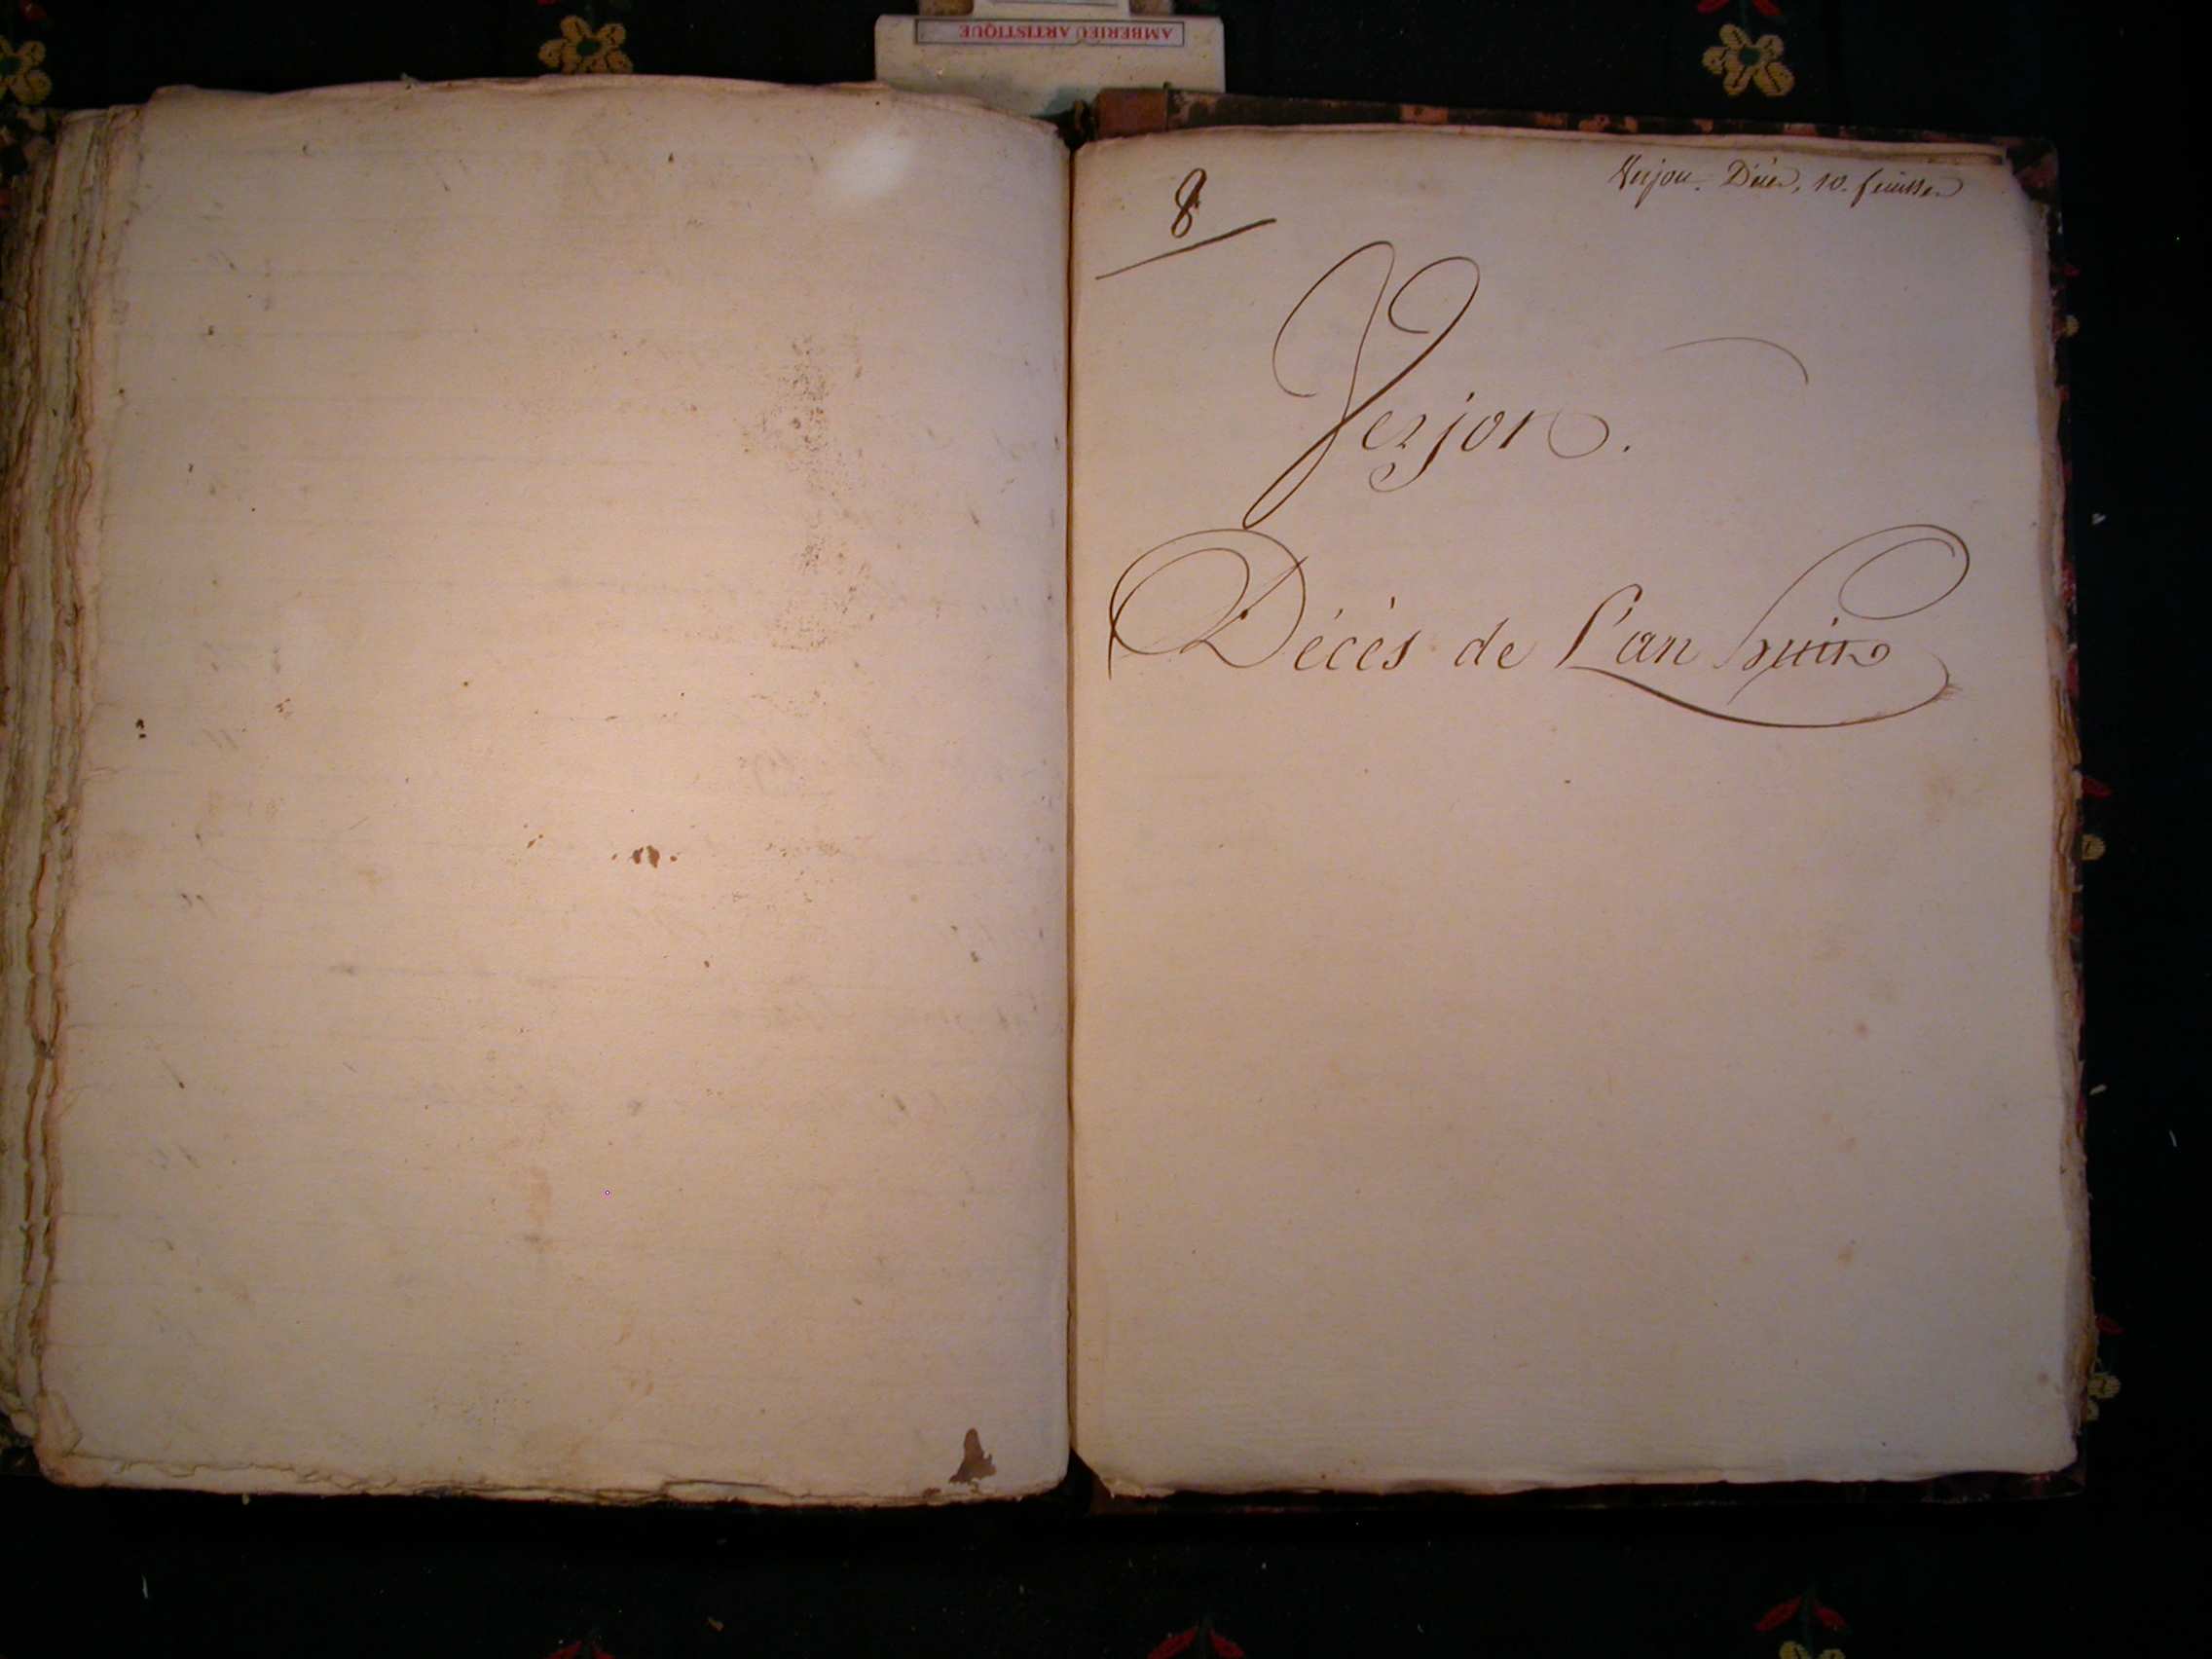 AMBERIEU ARTISTIQUE
Verjon. Décès, 10. feuilles
8
Verjon.
Décès de L'an huit